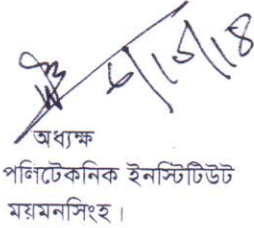 অধ্যক্ষ
পলিটেকনিক ইনস্টিটিউট
ময়মনসিংহ।